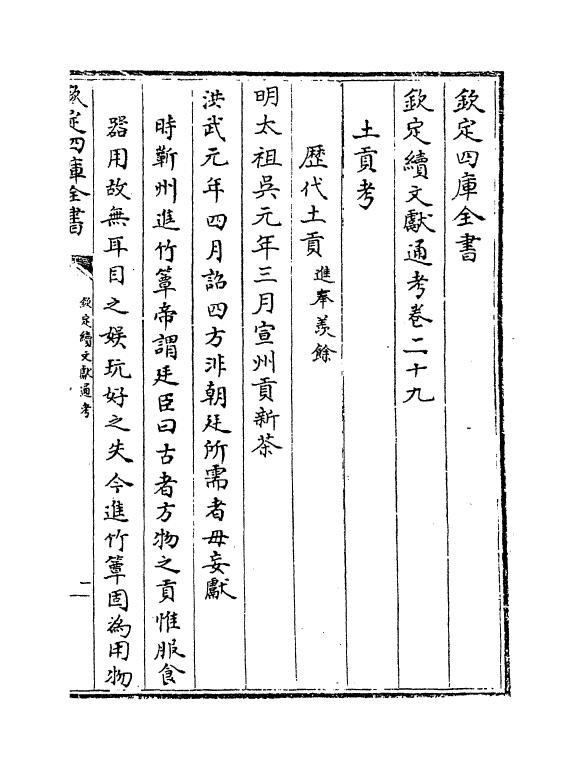 欽定四庫全書
欽定續文獻通考卷二十九
土貢考
歷代土貢 進奉羨餘
明太祖吳元年三月宣州貢新茶
洪武元年四月詔四方非朝廷所需者毋妄獻
時蘄州進竹簟帝謂廷臣曰古者方物之貢惟服食
器用故無耳目之娛玩好之失今進竹簟固為用物
欽定四庫全書
欽定續文獻通考